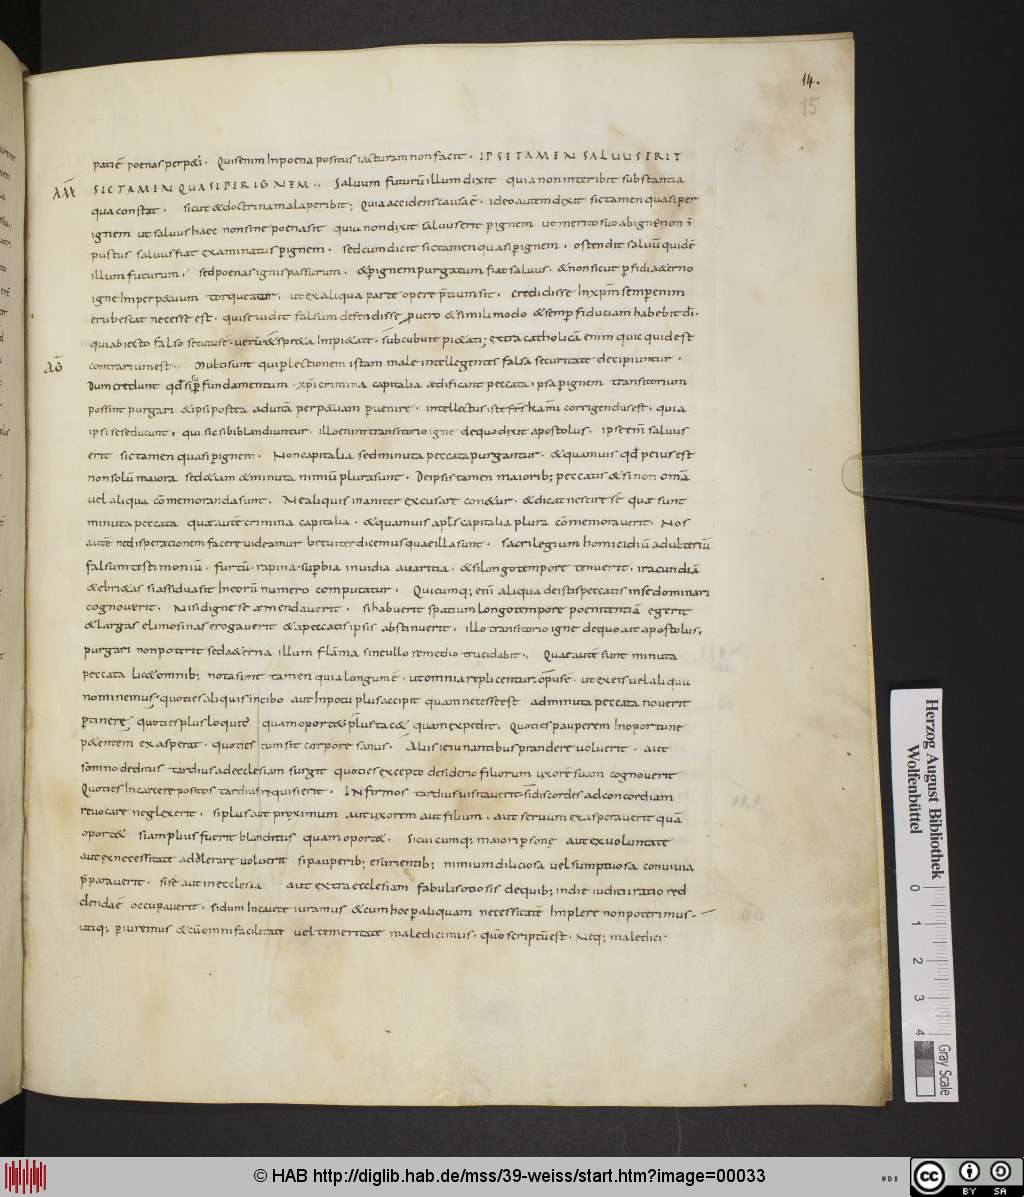 14.
15
patiẽ poenas perp&i. Quisenim In poena positus iacturam non facit. IPSE TAMEN SALUUS ERIT
AM SIC TAMEN QUASI PER IGNEM. Saluum futurũ illum dixit quia non interibit substantia
qua constat. sicut & doctrina mala peribit; Quia accidens causa ẽ. ideo autem dixit sic tamen quasi per
ignem ut salus haec non sine poena sit quia non dixit saluus erit p ignem ut merito suo ab igne non
pustus saluus fiat examinatus p ignem. sed cum dicit sic tamen quasi p ignem. ostendit saluũ quidẽ
illum futurum. sed poenas ignis passurum. & p ignem purgatum fiat saluus. & non sicut p fidi a&erno
igne In perp&uum torqueatur. ut ex aliqua parte opere p̃tium sit. credidisse In xp̃m semper enim
erubescat necesse est. qui se uidit falsum defendisse p uero & simili modo & semp fiduciam habebit d̃i.
qui abiecto falso secutus ẽ. ueru&spr&a Impi&ate. subcubuit pi&ati; extra catholicã enim quic quid est
AG contrarium est. Multi sunt qui p lectionem istam male intellegentes falsa securitate decipiuntur.
Dum credunt qd si sup fundamentum xp̃i crimina capitalia ædificant peccata ipsa p ignem transitorium
possint purgari & ipsi postea ad uitã perp&uam p uenire. intellectus iste frs̃ kar̃mi corrigendus est. quia
ipsi se seducunt. qui sic sibi blandiuntur. illo enim transitorio igne de quo dixit apostolus. ipse em̃ saluus
erit sic tamen quasi p ignem. Non capitalia sed minuta peccata purgantur. & quamuis qd̃ peius est
non solũ maiora sed &iam & minuta nimiũ plura sunt. De ipsis tamen maiorib; peccatis & si non omã
uel aliqua cõmemoranda sunt. Ne aliquis inaniter excusare con&ur. & dicat nescire se quae sunt
minuta peccata quae autẽ crimina capitalia. & quamuis apl̃s capitalia plura cõmemorauerit. Nos
autẽ ne disperationem facere uideamur breuiter dicemus quae illa sunt. sacrilegium homicidiũ adulteriũ
falsum testimoniũ. furtũ. rapina. supbia inuidia auaritia. & si longo tempore tenuerit. iracundiã
& ebri&as si assidua sit In eorũ numero computatur. Quicumq; em̃ aliqua de istis peccatis in se dominari
cognouerit. Nisi digne se æmendauerit. si habuerit spatium longo tempore poenitentiã egerit
& largas elimosinas erogauerit & a peccatis ipsis abstinuerit. illo transitorio igne de quo ait apostolus,
purgari non poterit sed a&erna illum flãma sine ullo remedio cruciabit. Quae autẽ sunt minuta
peccata lic& omnib; nota sint tamen quia longum ẽ. ut omnia replicentur. opus ẽ. ut ex eis uel aliqua
nominemus. quoties aliquis in cibo aut In potu plus accipit quam necesse est ad minuta peccata nouerit
ptinere. quoties plus loquitẽ quam oport& plus tac& quam expedit. Quoties pauperem In oportune
p&entem exasperat. quoties cum sit corpore sanus. Aliis ieiunantibus prandere uoluerit. aut
somno deditus tardius ad ecclesiam surgit quoties excepto desiderio filiorum uxorẽ suam cognouerit
Quoties In carcere positos tardius requisierit. Infirmos tardius uisitauerit. si discordes ad concordiam
reuocare neglexerit. si plus aut proximum aut uxorem aut filium. aut seruum exasperauerit quã
oport& si amplius fuerit blanditus quam oport&. si cuicumq; maiori psonę aut ex uoluntate
aut ex necessitate adolerare uoluerit si pauperib; esurientib; nimium diliciosa uel sumptuosa conuiuia
p̃parauerit. si se aut in ecclesia aut extra ecclesiam fabulis otiosis de quib; in die iudicii ratio red
denda ẽ occupauerit. si dum Incaute iuramus & cum hoc p aliquam necessitatẽ Implere non poterimus.
utiq; p iuremus & cũ omni facilitate uel temeritate maledicimus. quõ scriptũ est. Neq; maledici
Herzog August Bibliothek
Wolfenbüttel
0 1 2 3 4
Gray Scale
© HAB http://diglib.hab.de/mss/39-weiss/start.htm?image=00033
cc BY SA